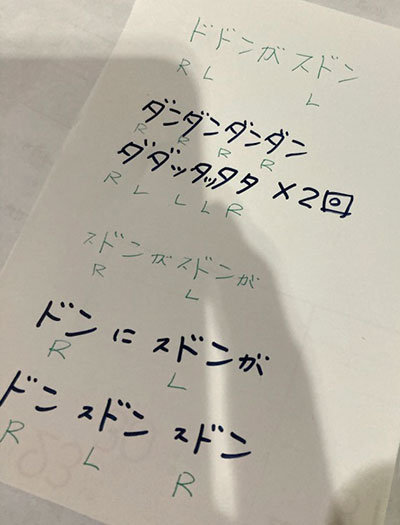 ドドンがスドン
R L L
ダンダンダンダン
R R R R
ダダッダッタタ ×2回
R L L L R
スドンがスドンが
R L
ドン に スドンが
R L
ドン スドン スドン
R L R